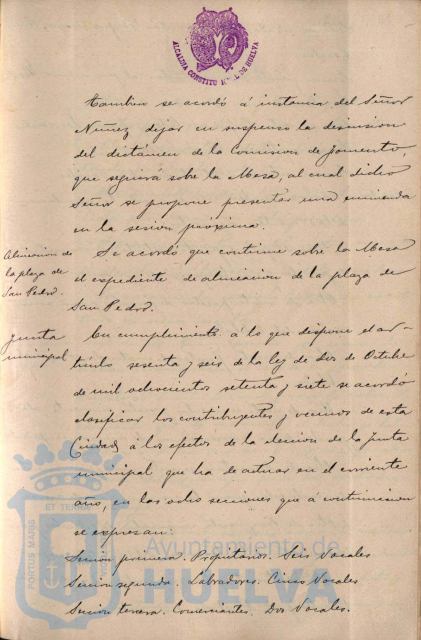 ALCALDIA CONSTITUCIONAL DE HUELVA
Tambien se acordó á instancia del Señor
Nuñez dejar en suspenso la discusion
del dictámen de la Comision de fomento,
que seguirá sobre la Mesa, al cual dicho
Señor se propone presentar una enmienda
en la sesion proxima.
Alineacion de
la plaza de
San Pedro.
Se acordó que continue sobre la Mesa
el expediente de alineacion de la plaza de
San Pedro.
Junta
municipal
En cumplimiento á lo que dispone el ar-
tículo sesenta y seis de la ley de dos de Octubre
de mil ochocientos setenta y siete se acordó
clasificar los contribuyentes y vecinos de esta
Ciudad á los efectos de la eleccion de la Junta
municipal que ha de actuar en el corriente
año, en las ocho secciones que á continuacion
se expresan:
Seccion primera. Propietarios. Seis Vocales
Seccion segunda. Labradores. Cinco Vocales
Seccion tercera. Comerciantes. Dos Vocales.
PORTUS MARIS ET TERRAE
Ayuntamiento de
HUELVA